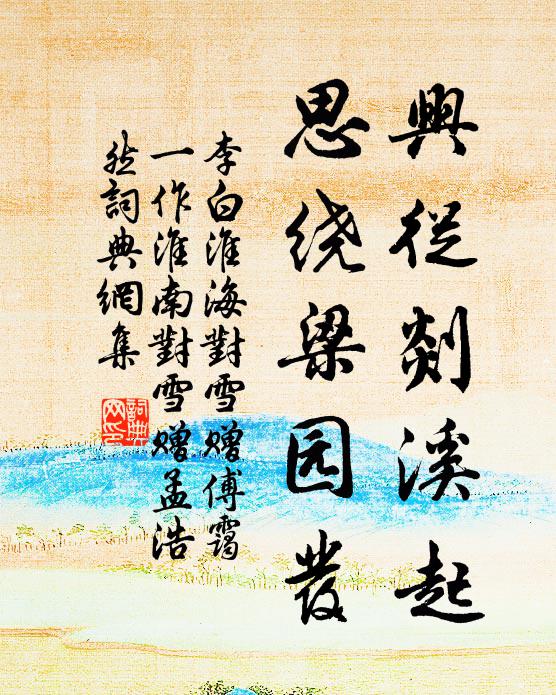 興從剡溪起
思绕梁园發
李白淮海對雪贈傅靄
一作淮南對雪贈孟浩
然詞典網集
詞典网印